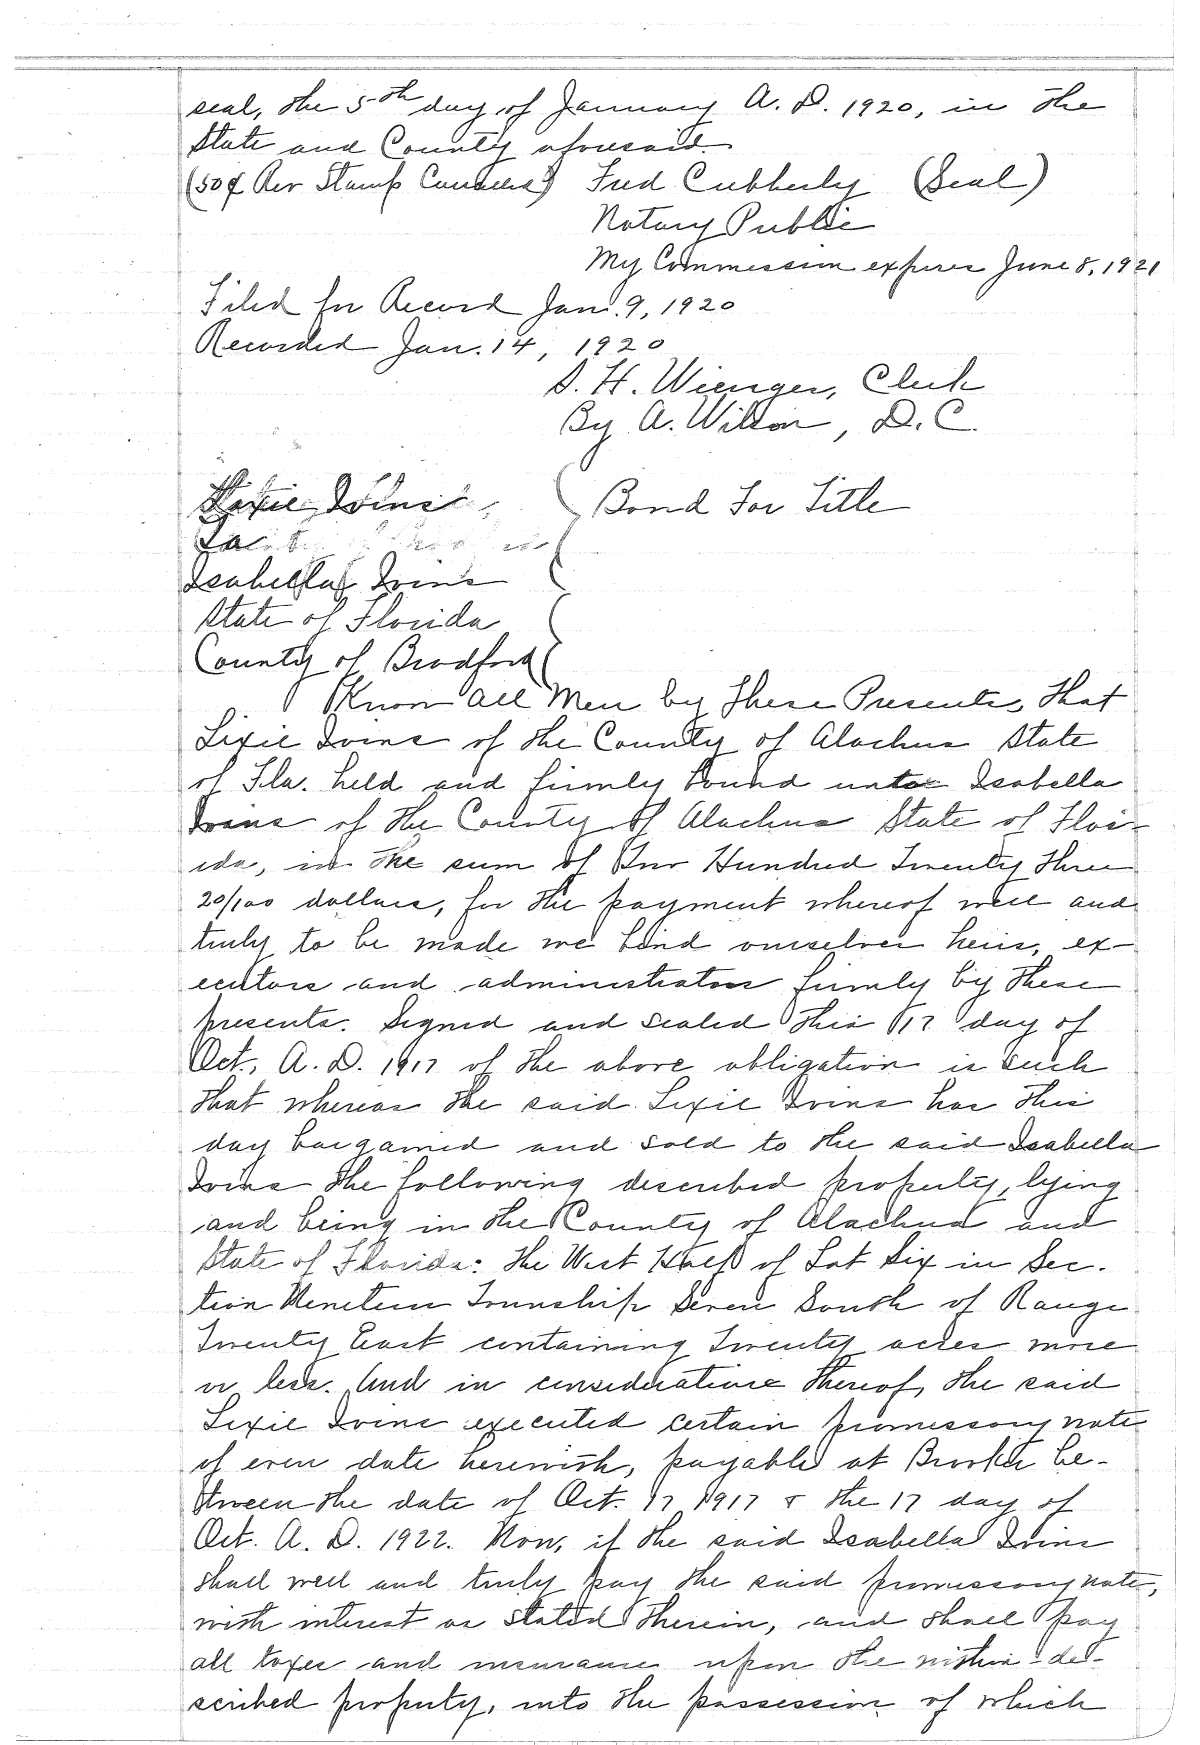 seal, the 5th day of January A. D. 1920, in the
State and County aforesaid.
(50¢ Rev Stamp Canceled) Fred Cubberly (Seal)
Notary Public
My Commission expires June 8, 1921
Filed for Record Jan. 9, 1920
Recorded Jan. 14, 1920
S. H. Wienges, Clerk
By A. Wilson, D. C.
Lixie Ivins
Bond For Title
Isabella Ivins
State of Florida
County of Bradford
Know All Men by These Presents, That
Lixie Ivins of the County of Alachua State
of Fla. held and firmly bound unto Isabella
Ivins of the County of Alachua State of Flor-
ida, in the sum of Two Hundred Twenty three
20/100 dollars, for the payment whereof well and
truly to be made we bind ourselves heirs, ex-
ecutors and administrators firmly by these
presents. Signed and sealed this 17 day of
Oct, A. D. 1917 of the above obligation is such
that whereas the said Lixie Ivins has this
day bargained and sold to the said Isabella
Ivins the following described property, lying
and being in the County of Alachua and
State of Florida: The West Half of Lot Six in Sec-
tion Nineteen Township Seven South of Range
Twenty East containing Twenty acres more
or less. And in consideration thereof, the said
Lixie Ivins executed certain promissory note
of even date herewith, payable at Brooker be-
tween the date of Oct. 17 1917 & the 17 day of
Oct. A. D. 1922. Now, if the said Isabella Ivins
shall well and truly pay the said promissory note,
with interest as stated therein, and shall pay
all taxes and insurance upon the within de-
scribed property, into the possession of which